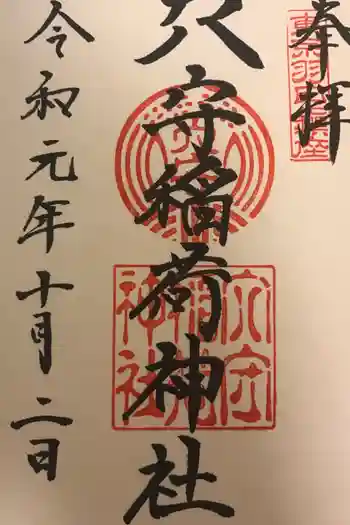 奉拝
穴守稲荷神社
令和元年十月二日
穴守
稲荷
神社